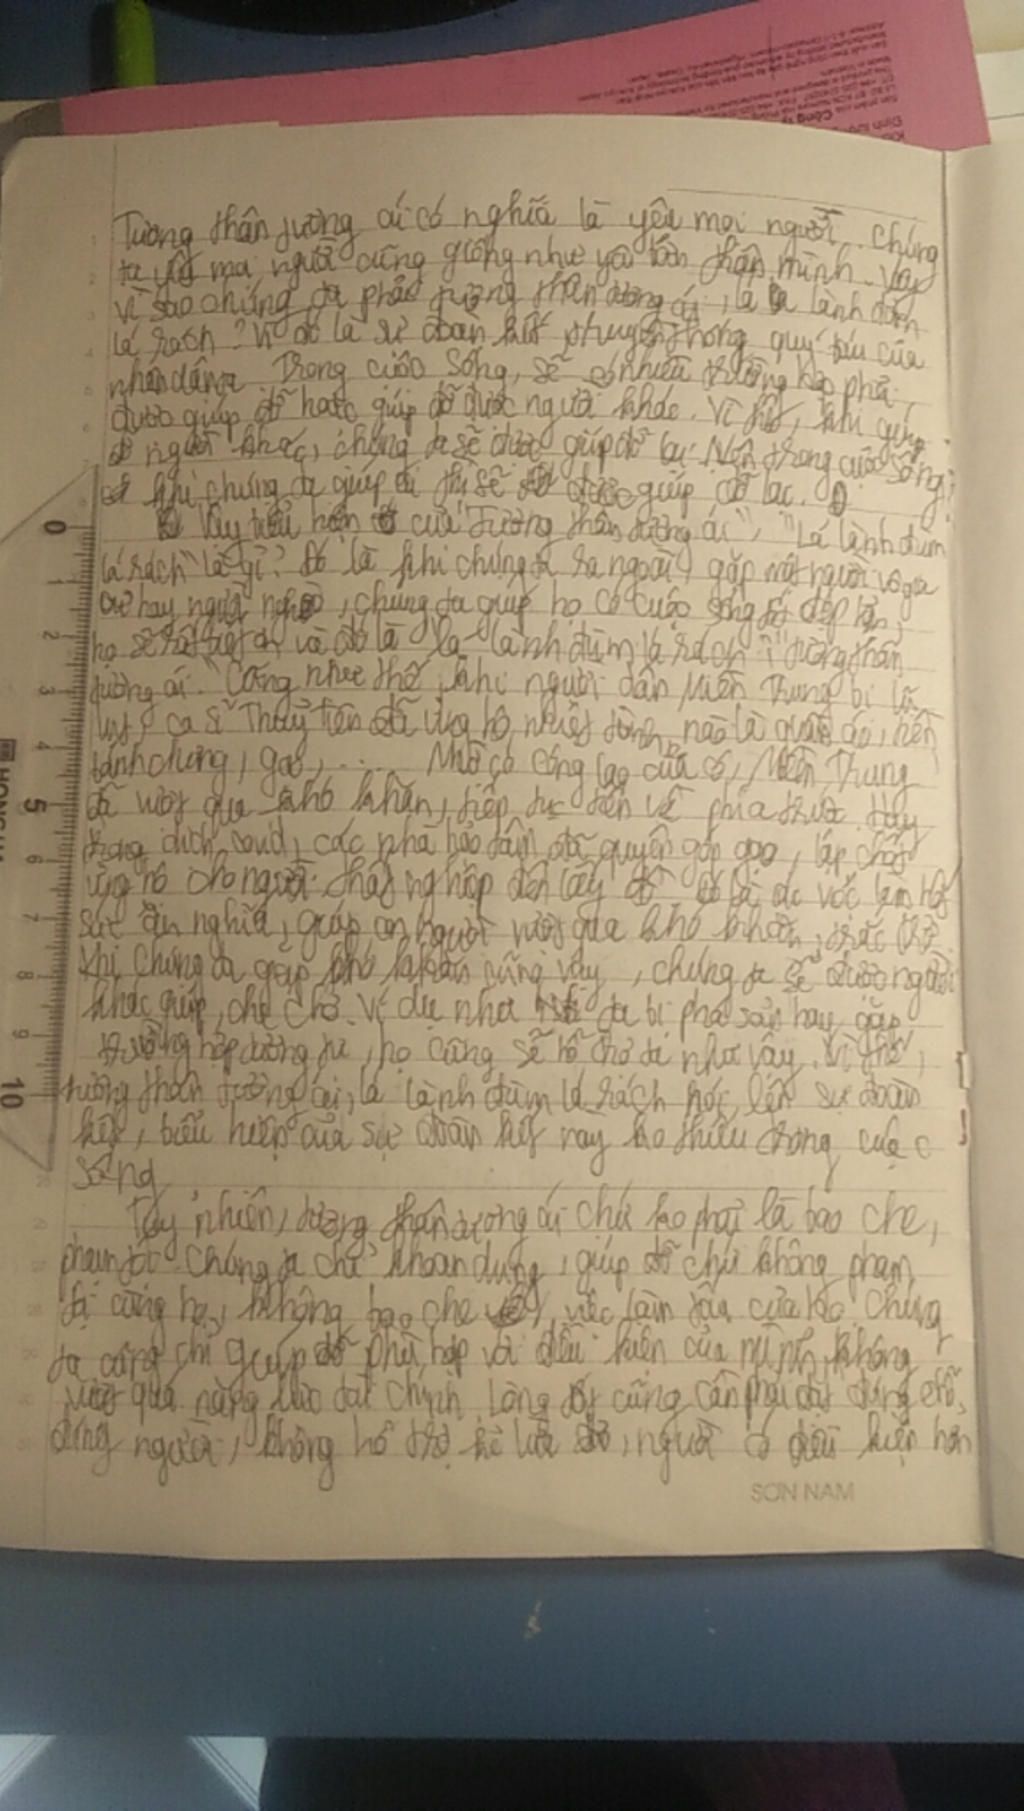 Tương thân tương ái có nghĩa là yêu mọi người. Chúng
ta yêu mọi người cũng giống như yêu bản thân mình. Vậy
vì sao chúng ta phải tương thân tương ái, lá lành đùm
lá rách? Vì đó là sự đoàn kết, truyền thống quý báu của
nhân dân ta. Trong cuộc sống, sẽ có nhiều trường hợp phải
được giúp đỡ hoặc giúp đỡ được người khác. Vì thế, khi giúp
đỡ người khác, chúng ta sẽ được giúp đỡ lại. Nên trong cuộc sống,
khi chúng ta giúp ai thì sẽ được giúp đỡ lại.
Vậy biểu hiện của "Tương thân tương ái", "Lá lành đùm
lá rách" là gì? Đó là khi chúng ta ra ngoài, gặp một người vô gia
cư hay người nghèo, chúng ta giúp họ có cuộc sống tốt đẹp hơn,
họ sẽ rất biết ơn và đó là "lá lành đùm lá rách", "tương thân
tương ái." Cũng như thế, khi người dân Miền Trung bị lũ
lụt, ca sĩ Thuỷ Tiên đã ủng hộ nhiệt tình, nào là quần áo, tiền
bánh chưng, gạo, .... Nhờ có công lao của cô, Miền Trung
đã vượt qua khó khăn, tiếp tục tiến về phía trước. Hay
trong dịch covid, các nhà hảo tâm đã quyên góp gạo, lắp
ủng hộ cho người thất nghiệp đến lấy đồ. Đó là các việc làm hết
sức ân nghĩa, giúp con người vượt qua khó khăn, trắc trở
Khi chúng ta gặp khó khăn cũng vậy, chúng ta sẽ được người
khác giúp, che chở. Ví dụ như ta bị phá sản hay gặp
trường hợp tương tự, họ cũng sẽ hỗ trợ ta như vậy. Vì thế,
tương thân tương ái, lá lành đùm lá rách nói lên sự đoàn
kết, biểu hiện của sự đoàn kết này ko thiếu trong cuộc
sống
Tuy nhiên, tương thân tương ái chứ ko phải là bao che,
phạm tội. Chúng ta chỉ khoan dung, giúp đỡ chứ không phạm
tội cùng họ, không bao che việc làm xấu của họ. Chúng
ta cũng chỉ giúp đỡ phù hợp với điều kiện của mình, không
vượt quá năng lực tài chính. Lòng tốt cũng cần phải đặt đúng chỗ,
đúng người, không hỗ trợ kẻ lừa đảo, người có điều kiện hơn
SƠN NAM
0
1
2
3
4
5
6
7
8
9
10